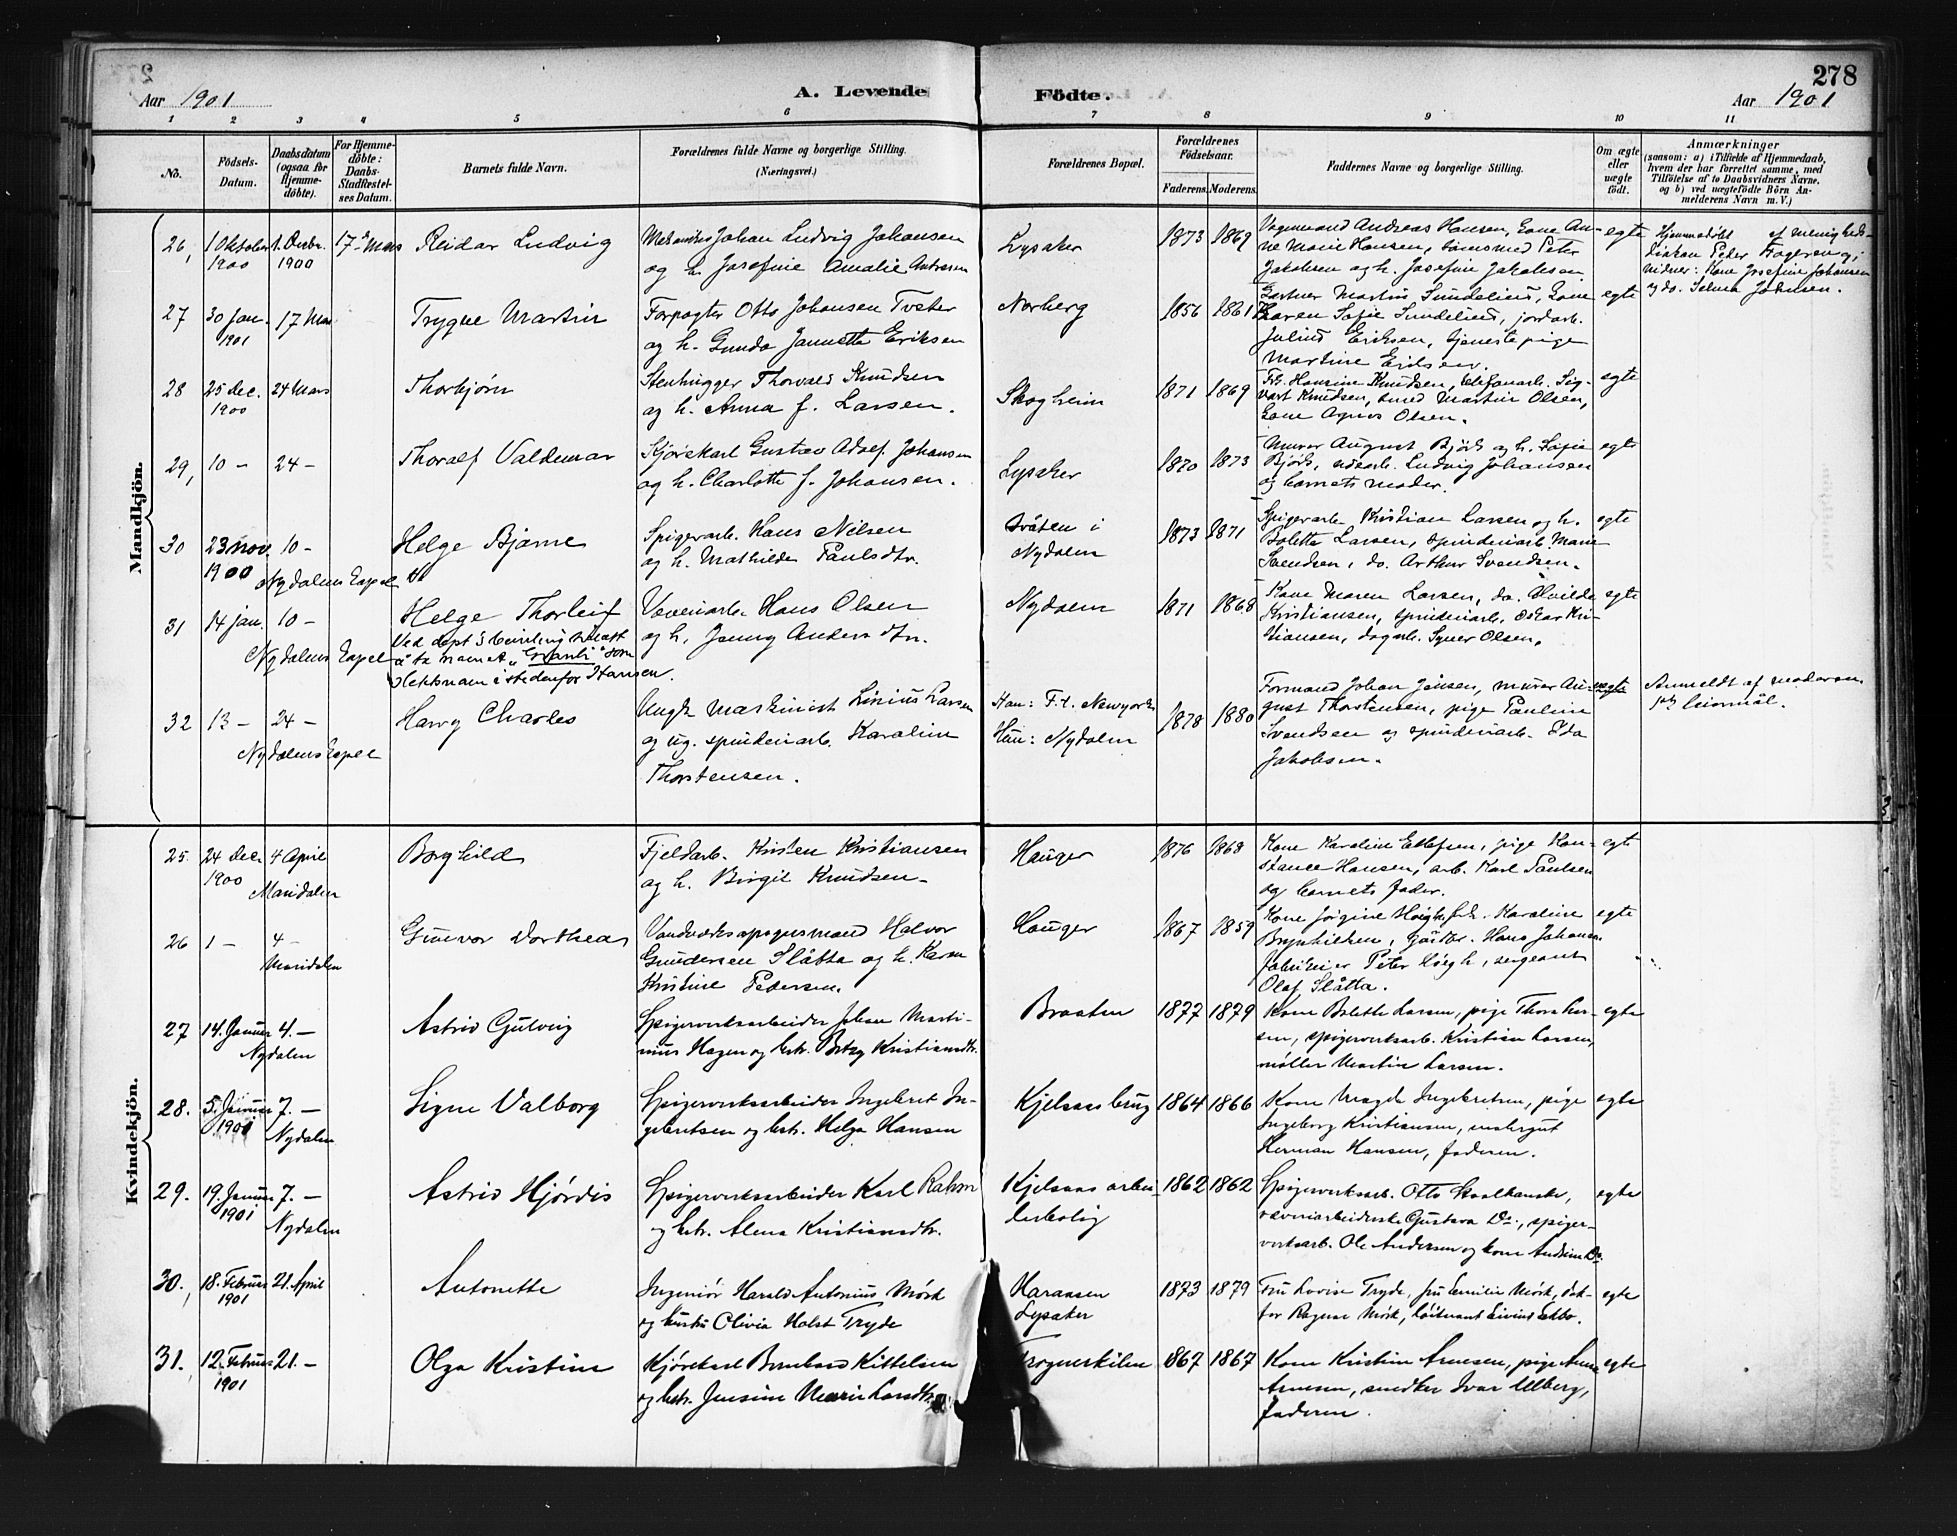 278
Aar 1901
A. Levende
Födte.
Aar 1901
1 2 3 4 5 6 7 8 9 10 11
No.
Födsels-
Datum.
Daabsdatum
(ogsaa for
Hjemme-
döbte).
For Hjemme-
döbte:
Daabs-
Stadfæstel-
ses Datum.
Barnets fulde Navn.
Forældrenes fulde Navne og borgerlige Stilling.
(Næringsvei.)
Forældrenes Bopæl.
Forældrenes
Födselsaar.
Faderens. Moderens.
Faddernes Navne og borgerlige Stilling.
Om ægte
eller
uægte
födt.
Anmærkninger
(saasom: a) i Tilfælde af Hjemmedaab,
hvem der har forrettet samme, med
Tilföielse af to Daabsvidners Navne,
og b) ved uægtefödte Börn An-
melderens Navn m. V.)
Mandkjön.
26, 1 Oktober 17 Mars Reidar Ludvig
1900 1900
Johan Ludvig Johansen
og h. Josefine Amalie
Lysaker 1873 1869
Vognmand Andreas Hansen, Kone An-
ne Marie Hansen, Peter
Jakobsen og h. Josefine Jakobsen
egte
Hjemmedøbt af menigheds-
diakon Peter Fagereng;
vidner: Kone Josefine Johansen
og do. Selma Johnsen.
27 30 Jan. 17 Mars Trygve Martin
1901
Forpagter Otto Johansen Tveter
og h. Gunda Jannette Eriksen
Norberg 1856 1861
Gartner Martin Sundelius, Kone
Karen Sofie Sundelius, jordarb.
Julius Eriksen, tjenestepige
Martine Eriksen.
egte
28 25 Dec. 24 Mars Thorbjørn
1900
Stenhugger Thorvald Knudsen
og h. Anna f. Larsen.
Skogheim 1871 1869
Frk. Hansine Knudsen, telefonarb. Sig-
vart Knudsen, smed Martin Olsen,
Kone Agnes Olsen.
egte
29, 10 - 24 - Thoralf Valdemar
Kjørekarl Gustav Adolf Johansen
og h. Charlotte f. Johansen.
Lysaker 1870 1873
Murer August Bjørk og h. Sofie
Bjørk, Ludvig Johansen
og barnets moder.
egte
30 23 nov. 10 - Helge Bjarne
1900 Nydalens Capel
Spigerarb. Hans Nilsen
og h. Mathilde Paulsdtr.
Bråten i
Nydalen
1873 1871
Spigerarb. Kristian Larsen og h.
Bolette Larsen, spinderiarb. Marie
Svendsen, do. Arthur Svendsen.
egte
31 14 Jan. 10 - Helge Thorleif
Nydalens Capel
Ved dept's bevilling tillatt
å ta navnet "Granli" som
slektsnavn istedenfor Hansen.
Veveriarb. Hans Olsen
og h. Jenny Andersdtr.
Nydalen 1871 1868
Kone Maren Larsen, do. Alvilde
Kristiansen, spinderiarb. Oskar Kri-
stiansen, dagarb. Syver Olsen.
egte
32 13 - 24 - Harry Charles
Nydalens Capel
Ungk. maskinist Linius Larsen
og ug. spinderiarb. Karoline
Thorstensen.
Han: F.t. Newyork
Hun: Nydalen
1878 1880
Formand Johan Jensen, murer Au-
gust Thorstensen, pige Pauline
Svendsen og spinderiarb. Ida
Jakobsen.
uegte
Anmeldt af moderen
Kvindekjön.
25. 24 Dec. 4 April Borghild
1900 Maridalen
Fjeldarb. Kristen Kristiansen
og h. Birgit Knudsen
Hauger 1876 1868
Kone Karoline Ellefsen, pige Kon-
stance Hansen, arb. Karl Paulsen
og barnets fader.
egte
26 1 - 4 - Gunvor Dorthea
Maridalen
Vandværksopsynsmand Halvor
Gundersen Slåtta og h. Karen
Kristine Pedersen.
Hauger 1867 1859
Kone Jørgine Høegh, frk. Karoline
Brynhildsen, gårdbr. Hans Johansen
fabrikeier Peter Høegh, sergeant
Olaf Slåtta.
egte
27 14. Januar 4. - Astrid Gulvig
Nydalen
Spigerverksarbeider Johan Marti-
nius Hagen og hstr. Betzy Kristiansdtr.
Braaten 1877 1879
Kone Bolette Larsen, pige Thora Lar-
sen, spigerverksarb. Kristian Larsen,
møller Martin Larsen.
egte
28. 5. Januar 7. - Signe Valborg
1901 Nydalen
Spigerverksarbeider Ingebret In-
gebretsen og hstr. Helga Hansen
Kjelsaas brug 1864 1866
Kone Magda Ingebretsen, pige
Ingeborg Kristiansen,
Herman Hansen, faderen.
egte
29. 19. Januar 7. - Astrid Hjørdis
1901 Nydalen
Spigerverksarbeider Karl Rahm
og hstr. Alma Kristiansdtr.
Kjelsaas arbei-
derbolig
1862 1862
Spigerverksarb. Otto Staalhanske,
væveriarbeiderske Gustava Do., spiger-
verksarb. Ole Andersen og kone Andrine Do.
egte
30. 18. Februar 21. April Antonette
1901
Ingeniør Harald Antonius Mørk
og hustru Olivia Holst Tryde
Lysaker
1873 1879
Fru Lovise Tryde, fru Emilie Mørk, dok-
tor Ragnar Mørk, løitnant Eivind Eckbo.
egte
31. 12. Februar 21. - Olga Kristine
1901
Kjørekarl Bernhard Kittelsen
og hstr. Jensine Marie Larsdtr.
Frognerkilen 1867 1867
Kone Kristine Arnesen, pige Anna
Arnesen, snedker Ivar Ulberg,
faderen.
egte